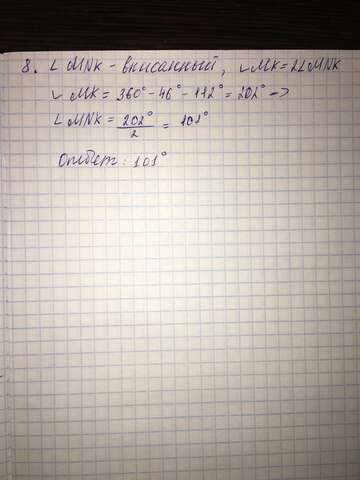 8. ∠ MNK - вписанный, ◡ MK = 2∠MNK
◡ MK = 360° - 46° - 112° = 202° ->
∠ MNK = 202°/2 = 101°
Ответ: 101°